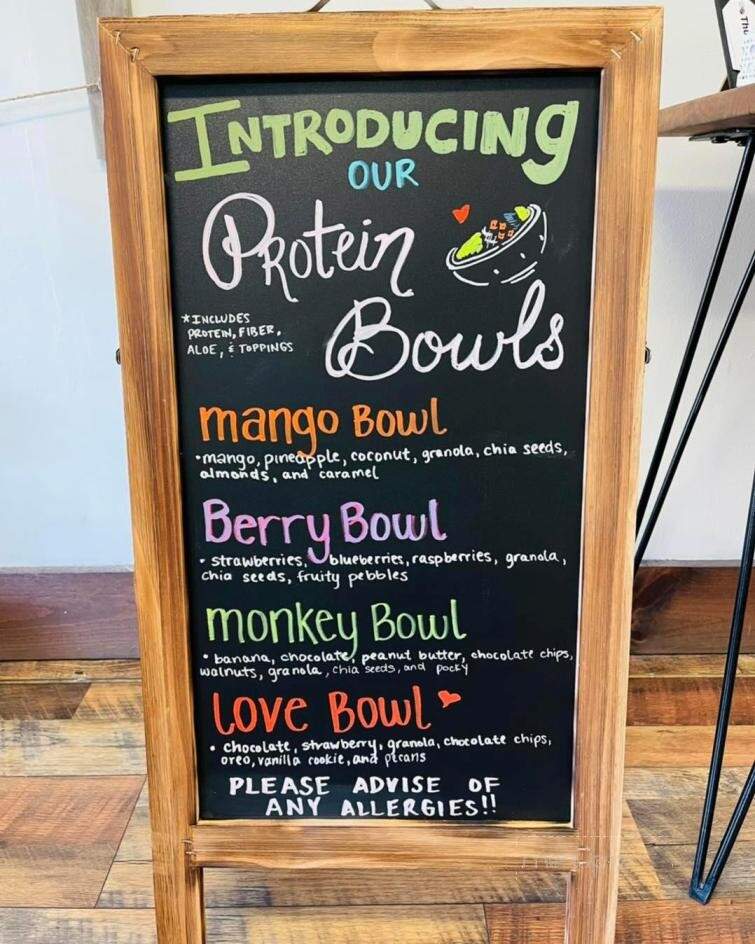 INTRODUCING
OUR
Protein
Bowls
*INCLUDES
PROTEIN, FIBER,
ALOE, & TOPPINGS
mango Bowl
• mango, pineapple, coconut, granola, chia seeds,
almonds, and caramel
Berry Bowl
• strawberries, blueberries, raspberries, granola,
chia seeds, fruity pebbles
monkey Bowl
• banana, chocolate, peanut butter, chocolate chips,
walnuts, granola, chia seeds, and pocky
Love Bowl
• chocolate, strawberry, granola, chocolate chips,
oreo, vanilla cookie, and pecans
PLEASE ADVISE OF
ANY ALLERGIES!!